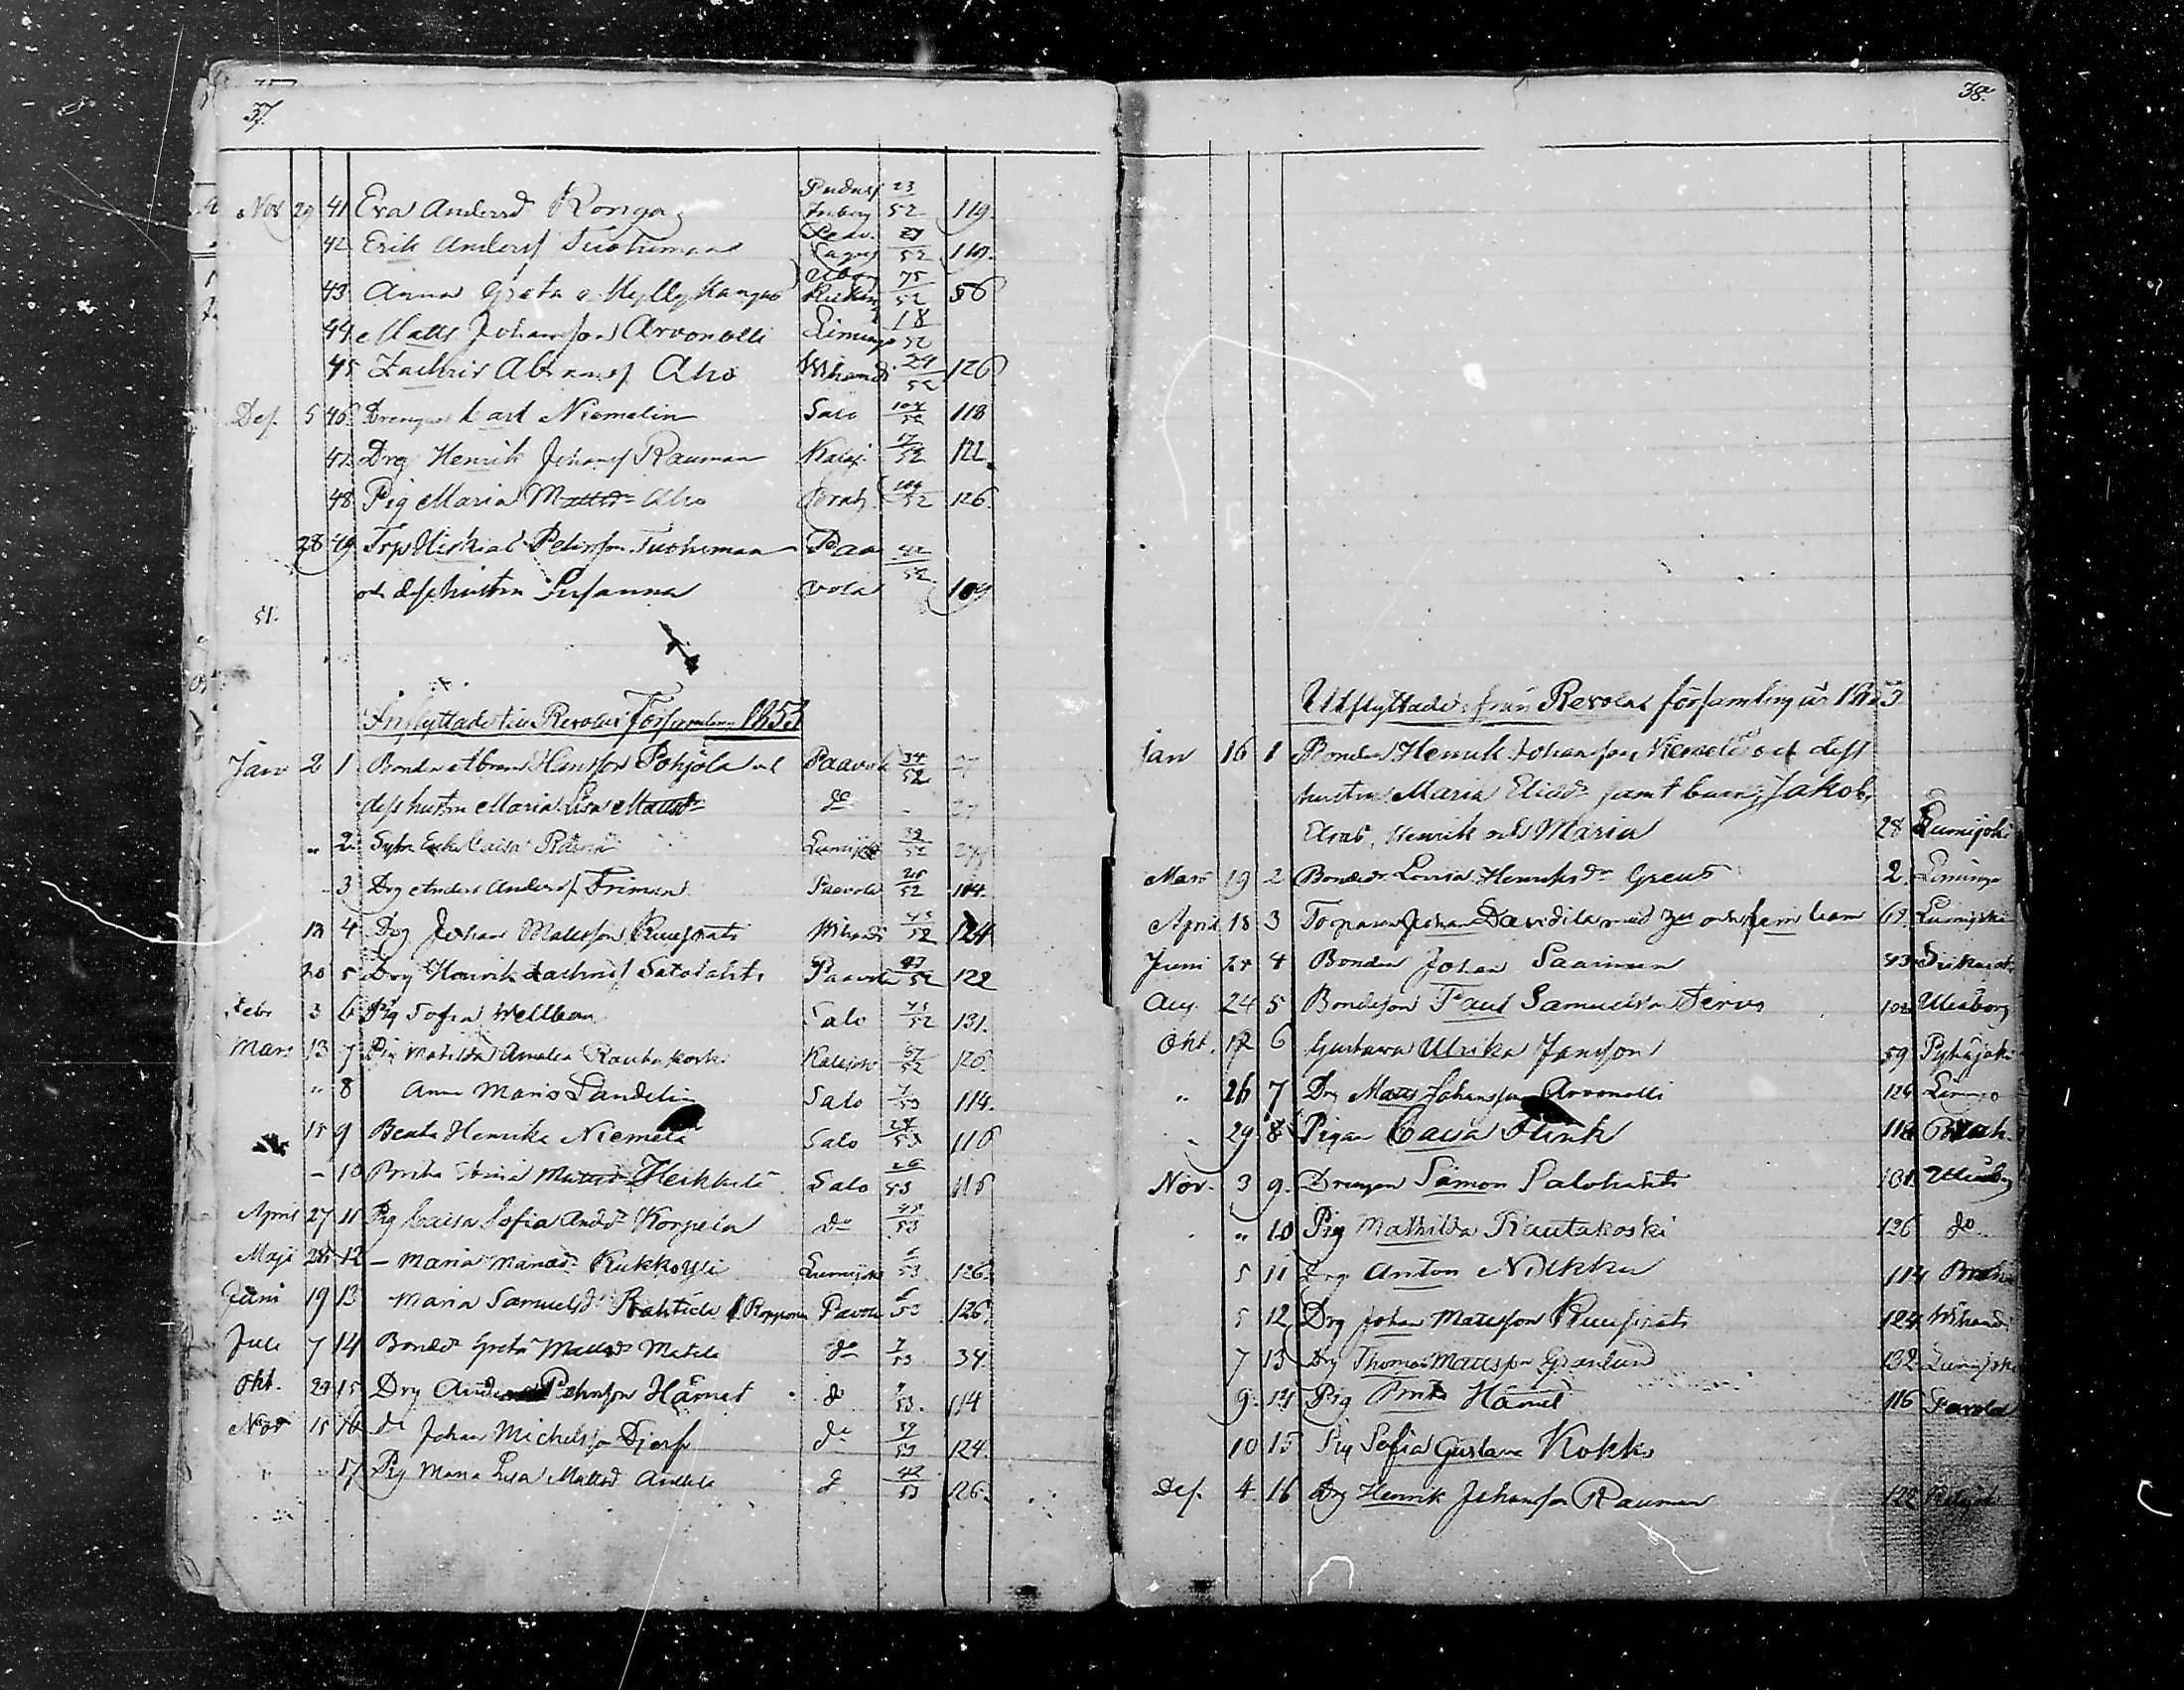 37.
Nov 29 41 Eva Andersd Konga 23/52 119.
42 Erik Andersf Tuohimaa 27/52 110.
43 Anna Greta Myllykangas 75/52 56
44 Matts Johansson Arvonolli Limingo 18/52
45 Zachris Abramsf Aho Wihandi 24/52 126
Des. 5 46 Drengen Karl Niemelin Salo 104/52 118
47 Drg Henrik Johansf Rauman Kalaj. 17/52 122.
48 Pig Maria Mattsdr Aho 52 126.
28 49 Trp Hiskias Petersson Tuohimaa Paa 42/52
och dess hustru Susanna vola 109
51.
Inflyttade till Revolax Församling 1853
Jan 2 1 Bonden Abram Hansson Pohjola och Paavola 34/52 27
dess hustru Maria Lisa Mattsdr do 27
" 2 Caisa Lumijoki 39/52
3 Drg Anders Andersf Friman Paavola 52 114.
12 4 Drg Johan Mattsson Ruusirati Wihandi 45/52 124
20 5 Drg Henrik Zachrisf Satolahti Paavola 47/52 122
Febr 3 6 Pig Sofia Wellman Salo 45/52 131.
Mars 13 7 Pig Matilda Amalia Rautakoski Kalajoki 67/52 126.
" 8 Anna Maria Sandelin Salo 7/53 114.
15 9 Beata Henrika Niemelä Salo 24/53 116
– 10 Brita Stina Mattsd Heikkilä Salo 26/53 116
April 27 11 Pig Caisa Sofia Andd Korpela do 48/53
Maji 12 – Maria Kukkohyi Lumijoki 6/53 126.
Juni 19 13 Maria Samuelsd Rahtula f. Ropponen Pavola 6/53 126.
Juli 7 14 Bonded. Greta Mattsdr Mattila do 7/53 34.
Okt. 29 15 Drg Anders Petersson Hämet do 53. 114
Nov 15 16 do Johan Michelsson Djerf do 39/53 124.
17 Pig Maria Lisa Mattsd Anttila d 42/53 126.
38.
Utflyttade från Revolax församling år 1853
Jan 16 1 Bonden Henrik Johansson Niemelä och dess
hustru Maria Eliaedr samt barn Jakob,
Elias, Henrik och Maria 28 Lumijoki
Mars 19 2 Bonded. Lovisa Henriksdr Greus 2. Limingo
April 18 3 Torparen Johan Davidila med och fem barn 67. Lumijoki
Juni 25 4 Bonden Johan Saarinen 43
Aug 24 5 Bondeson Paul Samuelsson Servo 102 Uleåborg
Okt. 12 6 Gustava Ulrika Jansson 59 Pyhäjoki
" 26 7 Drg Matts Johansson Arvonolli 124 Limingo
" 29 8 Pigan Caisa Flink 116 Brah.
Nov. 3 9. Drengen Simon Palohahti 101. Uleåborg
" 10 Pig Mathilda Rautakoski 126 do
5 11 Drg Anton Nikku 114 Brah
5 12 Drg Johan Mattsson Ruusirati 124 Wihandi
7 13 Drg Thomas Mattsson Granlund 132 Lumijoki
9. 14 Pig Brita Hämet 116 Pavola
10 15 Pig Sofia Gustava Kokko
Des. 4 16 Drg Henrik Johansson Rauman 122